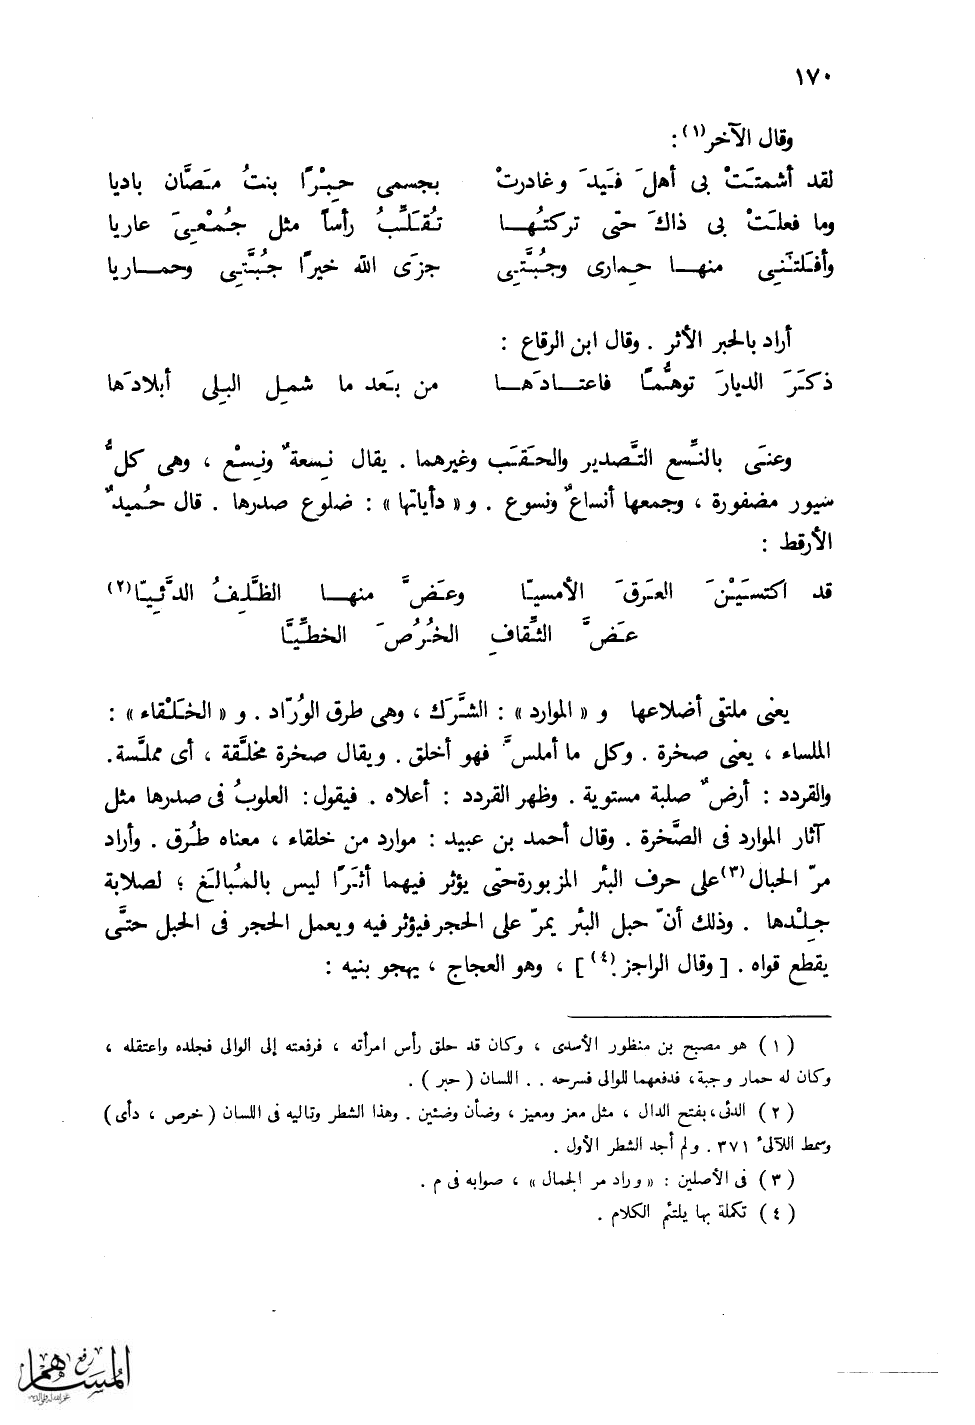 ١٧٠
وقال الآخر(١):
لقد أشمتَتْ بى أهلَ فَيدَ وغادرتْ بجسمى حِبْرًا بنتُ مَصَّان باديا
وما فعلَتْ بى ذاكَ حتّى تركتُهـا تُقَلِّبُ رأساً مثل جُمْعِىَ عاريا
وأفلتَنى منهـا حِمارى وجُبَّتِى جزَى الله خيرًا جُبَّتِى وحمـاريا
أراد بالحبر الأثر . وقال ابن الرقاع :
ذكَرَ الديارَ توهُّمًا فاعتـادَهـا من بَعد ما شمل البِلى أبلادَها
وعنَى بالنِّسع التَّصدير والحَقَب وغيرهما . يقال نِسعةٌ ونِسْع ، وهى كلُّ
سيور مضفورة ، وجمعها أنساعٌ ونسوع . و« دأياتها » : ضلوع صدرها . قال حُميدٌ
الأرقط :
قد اكتسَيْنَ العَرقَ الأمسيّا وعَضَّ منهـا الظَّلِفُ الدَّئيّا(٢)
عَضَّ الثِّقافِ الخُرُصَ الخطِّيَّا
يعنى ملتقى أضلاعها و « الموارد » : الشَّرَك ، وهى طرق الوُرّاد . و « الخَلْقاء » :
الملساء ، يعنى صخرة . وكل ما أملسَّ فهو أخلق . ويقال صخرة مخلَّقة ، أى مملَّسة .
والقردد : أرضٌ صلبة مستوية . وظهر القردد : أعلاه . فيقول : العلوبُ فى صدرها مثل
آثار الموارد فى الصَّخرة . وقال أحمد بن عبيد : موارد من خلقاء ، معناه طُرق . وأراد
مرّ الحبال(٣)على حرف البئر المزبورةحتى يؤثر فيهما أثرًا ليس بالمُبالَغ ؛ لصلابة
جِلْدها . وذلك أنّ حبل البئر يمرّ على الحجر فيؤثر فيه ويعمل الحجر فى الحبل حتَّى
يقطع قواه . [ وقال الراجز(٤) ] ، وهو العجاج ، يهجو بنيه :
( ١ ) هو مصبح بن منظور الأسدى ، وكان قد حلق رأس امرأته ، فرفعته إلى الوالى فجلده واعتقله ،
وكان له حمار وجبة ، فدفعهما للوالى فسرحه . . اللسان ( حبر ) .
( ٢ ) الدئى ، بفتح الدال ، مثل معز ومعيز ، وضأن وضئين . وهذا الشطر وتاليه فى اللسان ( خرص ، دأى )
وسمط اللآلىء ٣٧١ . ولم أجد الشطر الأول .
( ٣ ) فى الأصلين : « وراد مر الجمال » ، صوابه فى م .
( ٤ ) تكملة بها يلتئم الكلام .